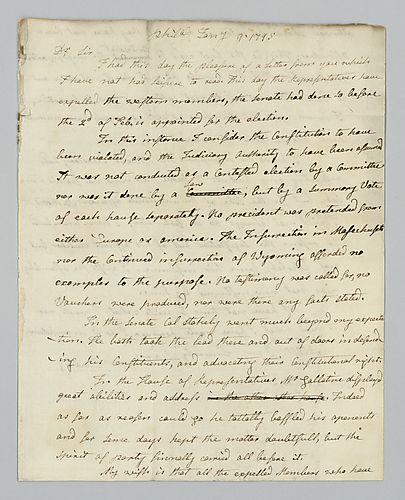 Philad.ª Jan.y 9. 1795
Dr. Sir
I had this day the pleasure of a letter from you which
I have not had leisure to read. This day the Representatives have
expelled the western members, the Senate had done so before
the 2d of Feb. is appointed for the election.
In this instance I consider the Constitution to have
been violated, and the Judiciary Authority to have been assumed
It was not conducted as a Contested election by a Committee
nor was it done by a Law Committee, but by a Summary Vote
of each house separately. No president was pretended from
either Europe or America. The Insurrection in Massachusets
nor the Continued insurrection of Wyoming afforded no
examples to the purpose. No testimony was called for, no
Vouchers were produced, nor were there any facts stated.
In the Senate Col Stokely went much beyond my expecta
tion. He hath took the lead there and out of doors in defend
ing his Constituents, and advocating their Constitutional right.
In the House of Representatives Mr Gallatine displayed
great abilities and address in the share this have. Indeed
as far as reason could go he totally baffled his oponents
and for some days kept the matter doubtfull, but the
Spirit of party finnally carried all before it.
My wish is that all the expelled Members who have